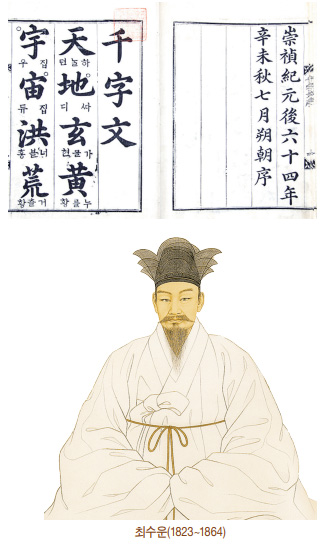 崇禎紀元後六十四年
辛未秋七月朔朝序
千字文
天地玄黃
하늘텬
ᄯᅡ디
가믈현
누를황
宇宙洪荒
집우
집듀
너블홍
거츨황
최수운(1823~1864)